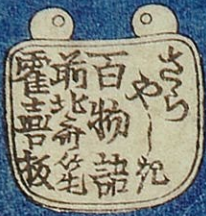 さらやしき
百物語
前北斎筆
霍喜板